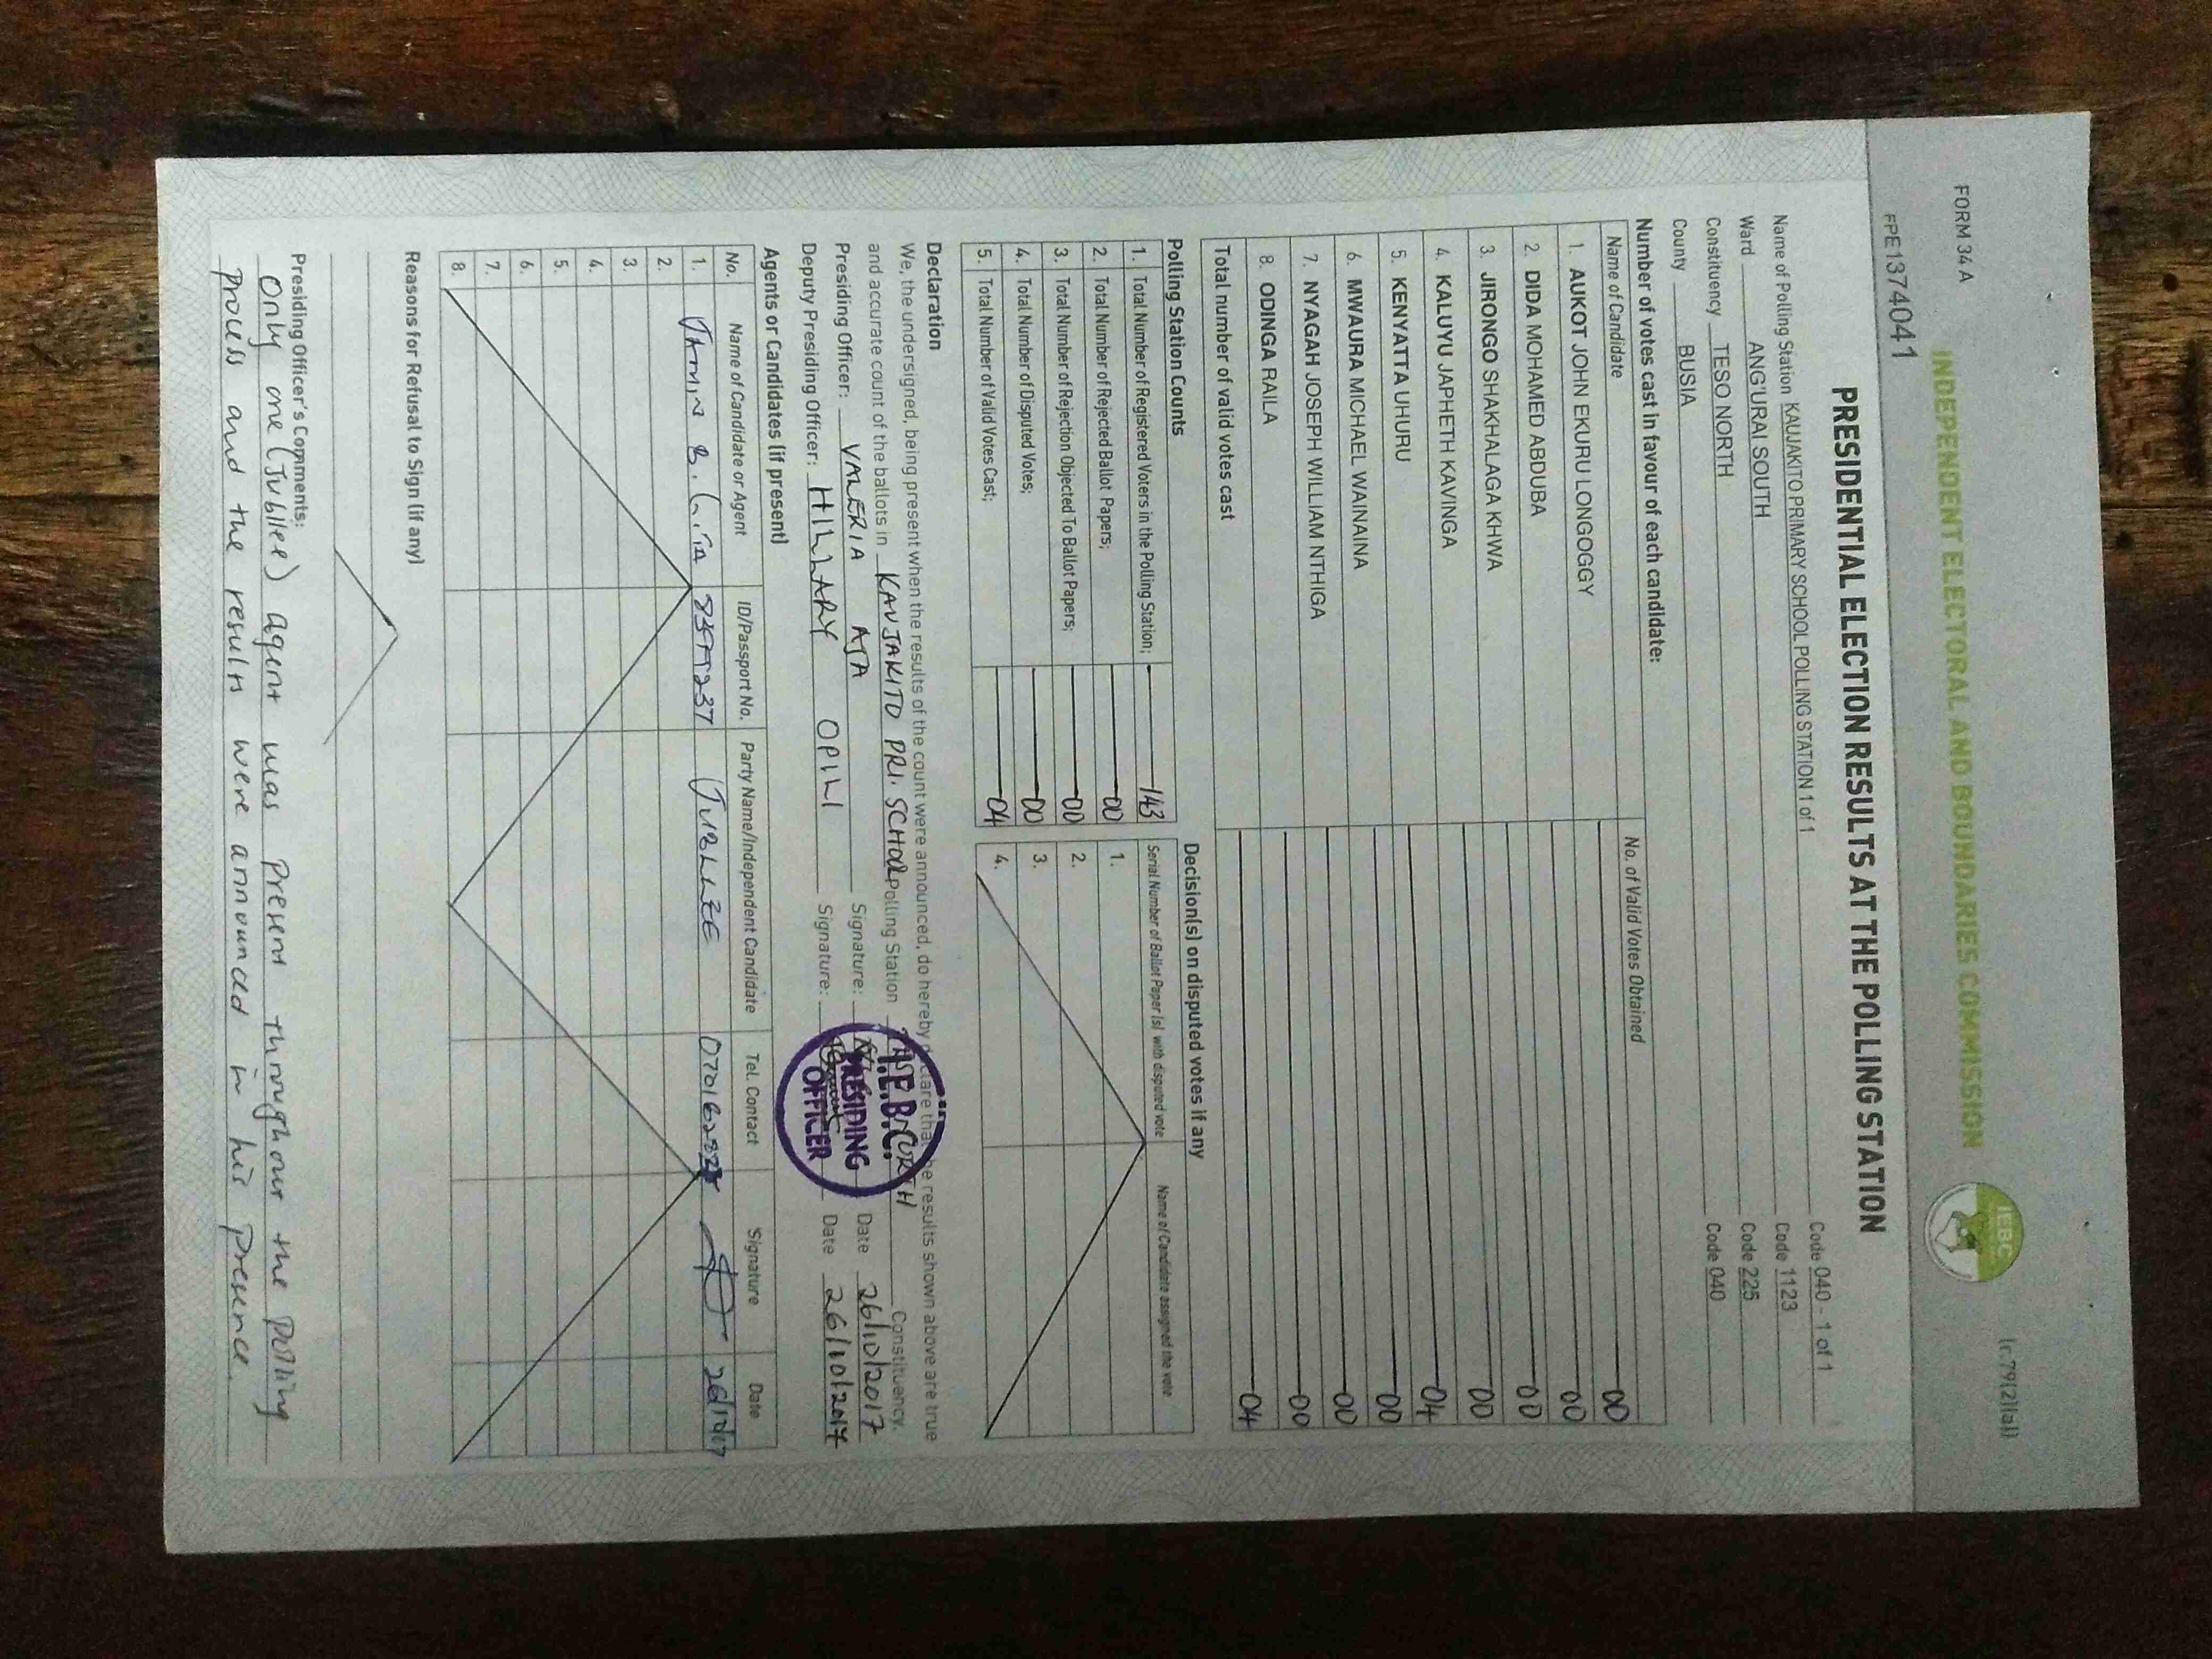 FORM 34 A
INDEPENDENT ELECTORAL AND BOUNDARIES COMMISSION
IEBC
(r.79(2)(a))
FPE1374041
PRESIDENTIAL ELECTION RESULTS AT THE POLLING STATION
Name of Polling Station KAUJAKITO PRIMARY SCHOOL POLLING STATION 1 of 1 Code 040 - 1 of 1
Ward ANG'URAI SOUTH Code 1123
Constituency TESO NORTH Code 225
County BUSIA Code 040
Number of votes cast in favour of each candidate:
Name of Candidate No. of Valid Votes Obtained
1. AUKOT JOHN EKURU LONGOGGY 00
2. DIDA MOHAMED ABDUBA 00
3. JIRONGO SHAKHALAGA KHWA 00
4. KALUYU JAPHETH KAVINGA 00
5. KENYATTA UHURU 04
6. MWAURA MICHAEL WAINAINA 00
7. NYAGAH JOSEPH WILLIAM NTHIGA 00
8. ODINGA RAILA 00
Total number of valid votes cast 04
Polling Station Counts
1. Total Number of Registered Voters in the Polling Station; 143
2. Total Number of Rejected Ballot Papers; 00
3. Total Number of Rejection Objected To Ballot Papers; 00
4. Total Number of Disputed Votes; 00
5. Total Number of Valid Votes Cast; 04
Decision(s) on disputed votes if any
Serial Number of Ballot Paper (s) with disputed vote Name of Candidate assigned the vote
1.
2.
3.
4.
Declaration
We, the undersigned, being present when the results of the count were announced, do hereby declare that the results shown above are true
and accurate count of the ballots in KAUJAKITO PRI. SCHOOL Polling Station Constituency.
Presiding Officer: VALERIA AJA Signature: Date 26/10/2017
Deputy Presiding Officer: HILLARY OPILI Signature: Date 26/10/2017
I.E.B.C.
PRESIDING
OFFICER
Agents or Candidates (if present)
No. Name of Candidate or Agent ID/Passport No. Party Name/Independent Candidate Tel. Contact Signature Date
1. JUBILEE 26/10/17
2.
3.
4.
5.
6.
7.
8.
Reasons for Refusal to Sign (if any)
Presiding Officer's Comments:
Only one (Jubilee) agent was present throughout the polling
process and the results were announced in his presence.